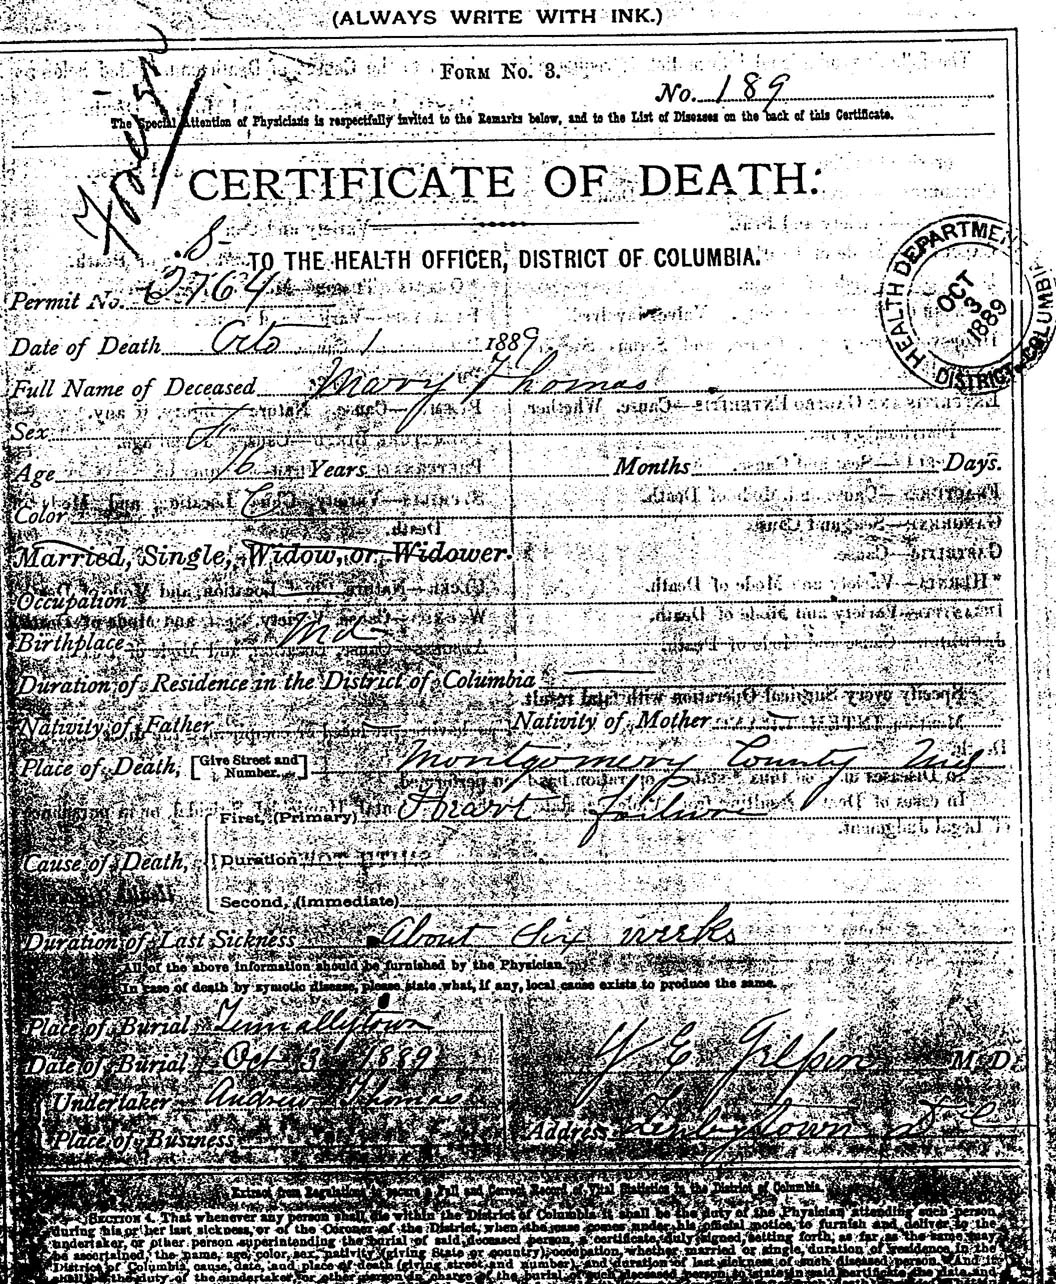 (ALWAYS WRITE WITH INK.)
Foreign
FORM NO. 3.
No. 189
The Special Attention of Physicians is respectfully invited to the Remarks below, and to the List of Diseases on the back of this Certificate.
CERTIFICATE OF DEATH.
TO THE HEALTH OFFICER, DISTRICT OF COLUMBIA.
HEALTH DEPARTMENT
OCT 3 1889
DISTRICT COLUMBIA
Permit No. 2764
Date of Death Octo 1 1889
Full Name of Deceased Mary Thomas
Sex
Age 16 Years Months Days.
Color Col
Married, Single, Widow, or Widower.
Occupation
Birthplace Md
Duration of Residence in the District of Columbia
Nativity of Father Nativity of Mother
Place of Death, [Give Street and Number.] Montgomery County
First, (Primary) Heart failure
Cause of Death, Duration
Second, (immediate)
Duration of Last Sickness About Six weeks
All of the above information should be furnished by the Physician.
In case of death by zymotic disease, please state what, if any, local cause exists to produce the same.
Place of Burial Tennallytown
Date of Burial Oct 3 1889 M. D.
Undertaker Andrew Thomas
Place of Business Address D C
Extract from Regulations to secure a Full and Correct Record of Vital Statistics in the District of Columbia.
SECTION 4. That whenever any person shall die within the District of Columbia it shall be the duty of the Physician attending such person
during his or her last sickness, or of the Coroner of the District, when the case comes under his official notice, to furnish and deliver to the
undertaker, or other person superintending the burial of said deceased person, a certificate, duly signed, setting forth, as far as the same may
be ascertained, the name, age, color, sex, nativity (giving State or country), occupation, whether married or single, duration of residence in the
District of Columbia, cause, date, and place of death (giving street and number), and duration of last sickness of such deceased person. And it
shall be the duty of the undertaker or other person in charge of the burial of such deceased person to state in said certificate the date and